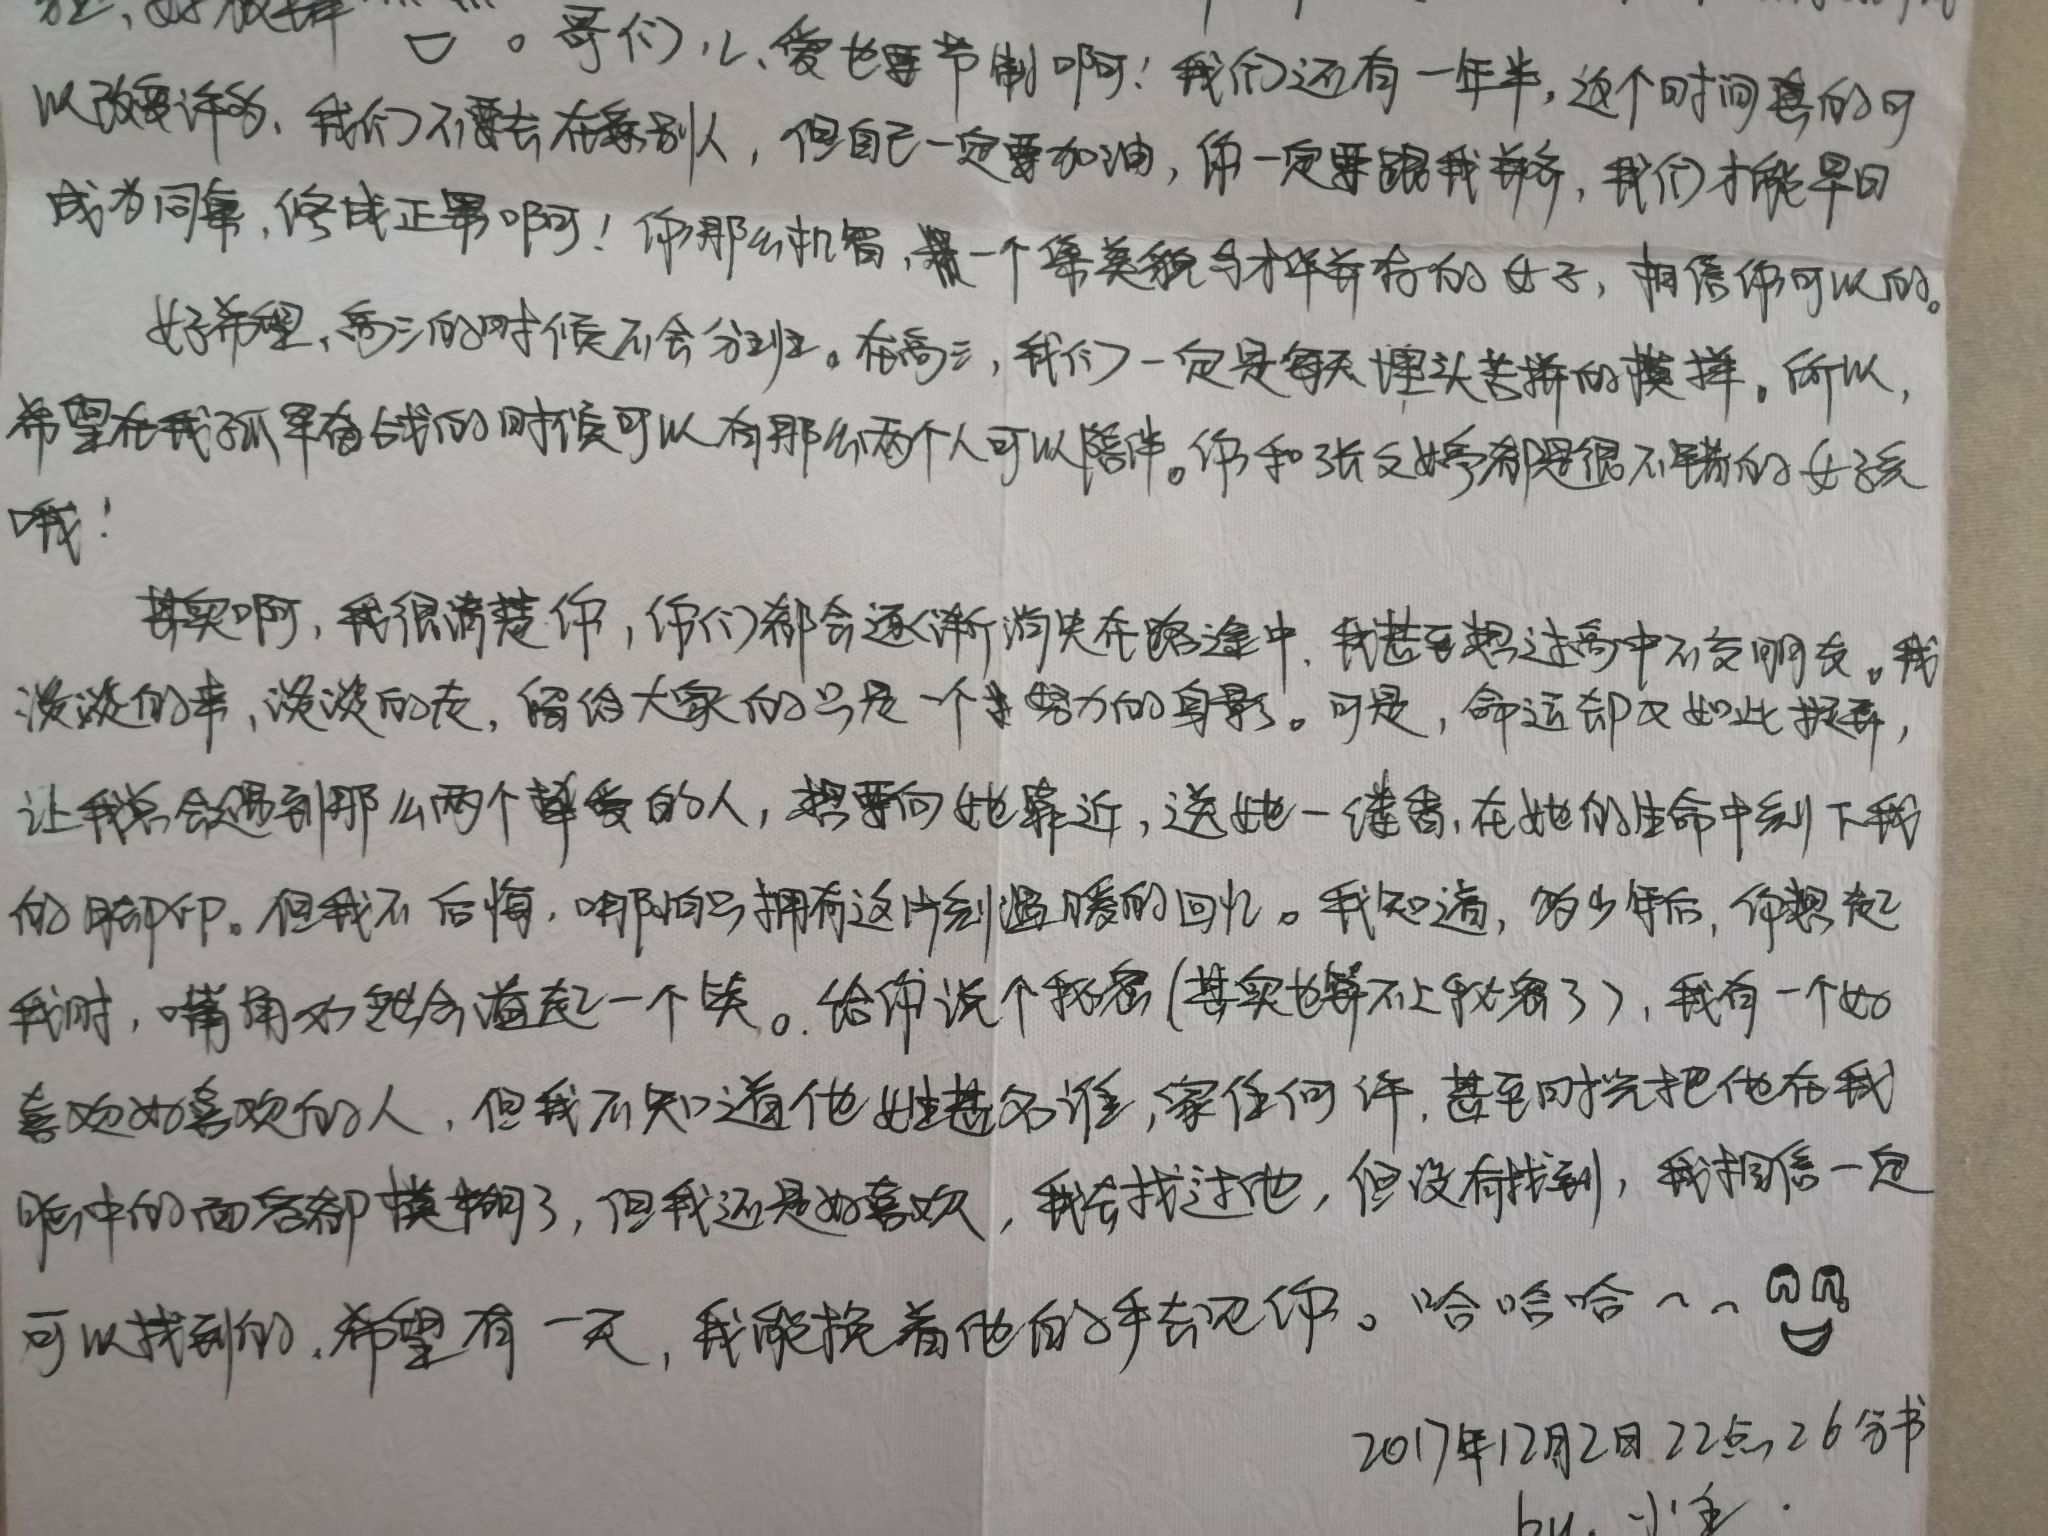 。哥们儿、爱也要节制啊！我们还有一年半，这个时间真的可
以改变许多、我们不要去在乎别人，但自己一定要加油，你一定要跟我并齐，我们才能早日
成为同事，修成正果啊！你那么机智，是一个集美貌与才华并存的女子，相信你可以的。
好希望，高三的时候不会分班。在高三，我们一定是每天埋头苦拼的模样。所以，
希望在我孤军奋战的时候可以有那么两个人可以陪伴。你和张文婷都是很不错的女孩
哦！
其实啊，我很清楚你，你们都会逐渐消失在路途中、我甚至想过高中不交朋友。我
淡淡的来，淡淡的走，留给大家的只是一个努力的身影。可是，命运却又如此捉弄，
让我总会遇到那么两个挚爱的人，想要向她靠近，送她一缕香，在她的生命中刻下我
的脚印。但我不后悔，哪怕只拥有这片刻温暖的回忆。我知道，多少年后，你想起
我时，嘴角必然会荡起一个笑。给你说个秘密(其实也算不上秘密了)，我有一个好
喜欢好喜欢的人，但我不知道他姓甚名谁，家住何许，甚至时光把他在我
脑中的面容都模糊了，但我还是好喜欢，我去找过他，但没有找到，我相信一定
可以找到的。希望有一天，我能挽着他的手去见你。哈哈哈~~
2017年12月2日 22点26分书
by. 小